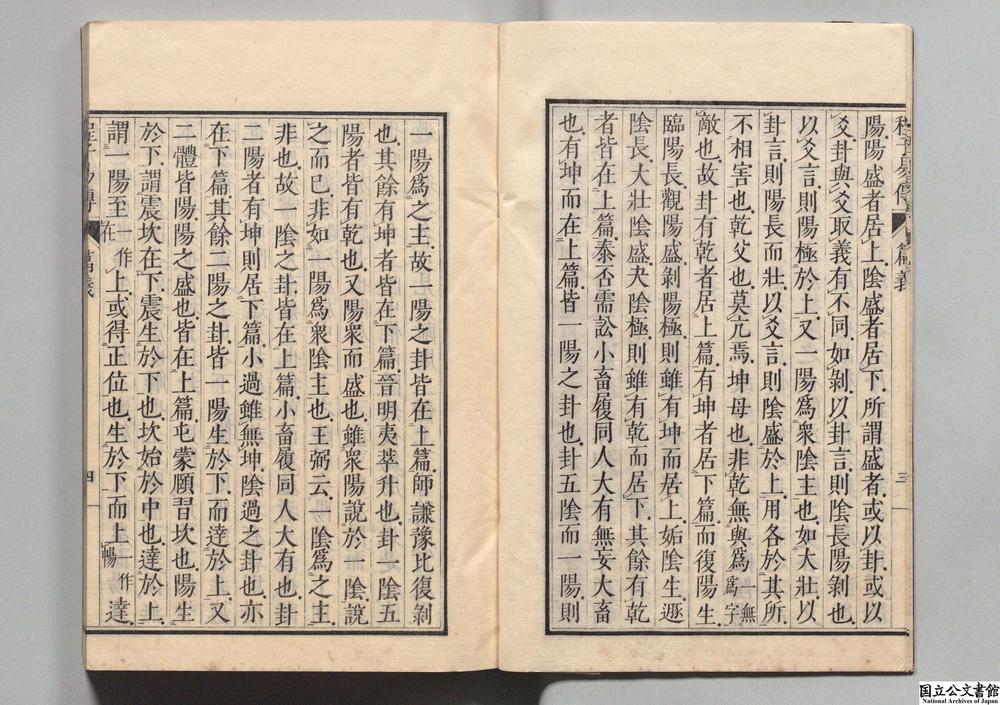 陽陽盛者居上陰盛者居下所謂盛者或以卦或以
爻卦與爻取義有不同如剝以卦言則陰長陽剝也
以爻言則陽極於上又一陽爲衆陰主也如大壯以
卦言則陽長而壯以爻言則陰盛於上用各於其所
不相害也乾父也莫亢焉坤母也非乾無與爲一無爲字
敵也故卦有乾者居上篇有坤者居下篇而復陽生
臨陽長觀陽盛剝陽極則雖有坤而居上姤陰生遯
陰長大壯陰盛夬陰極則雖有乾而居下其餘有乾
者皆在上篇泰否需訟小畜履同人大有無妄大畜
也有坤而在上篇皆一陽之卦也卦五陰而一陽則
三
一陽爲之主故一陽之卦皆在上篇師謙豫比復剝
也其餘有坤者皆在下篇晉明夷萃升也卦一陰五
陽者皆有乾也又陽衆而盛也雖衆陽說於一陰說
之而已非如一陽爲衆陰主也王弼云一陰爲之主
非也故一陰之卦皆在上篇小畜履同人大有也卦
二陽者有坤則居下篇小過雖無坤陰過之卦也亦
在下篇其餘二陽之卦皆一陽生於下而達於上又
二體皆陽陽之盛也皆在上篇屯蒙頤習坎也陽生
於下謂震坎在下震生於下也坎始於中也達於上
謂一陽至一作在上或得正位也生於下而上一作暢達
篇義
四
国立公文書館
National Archives of Japan